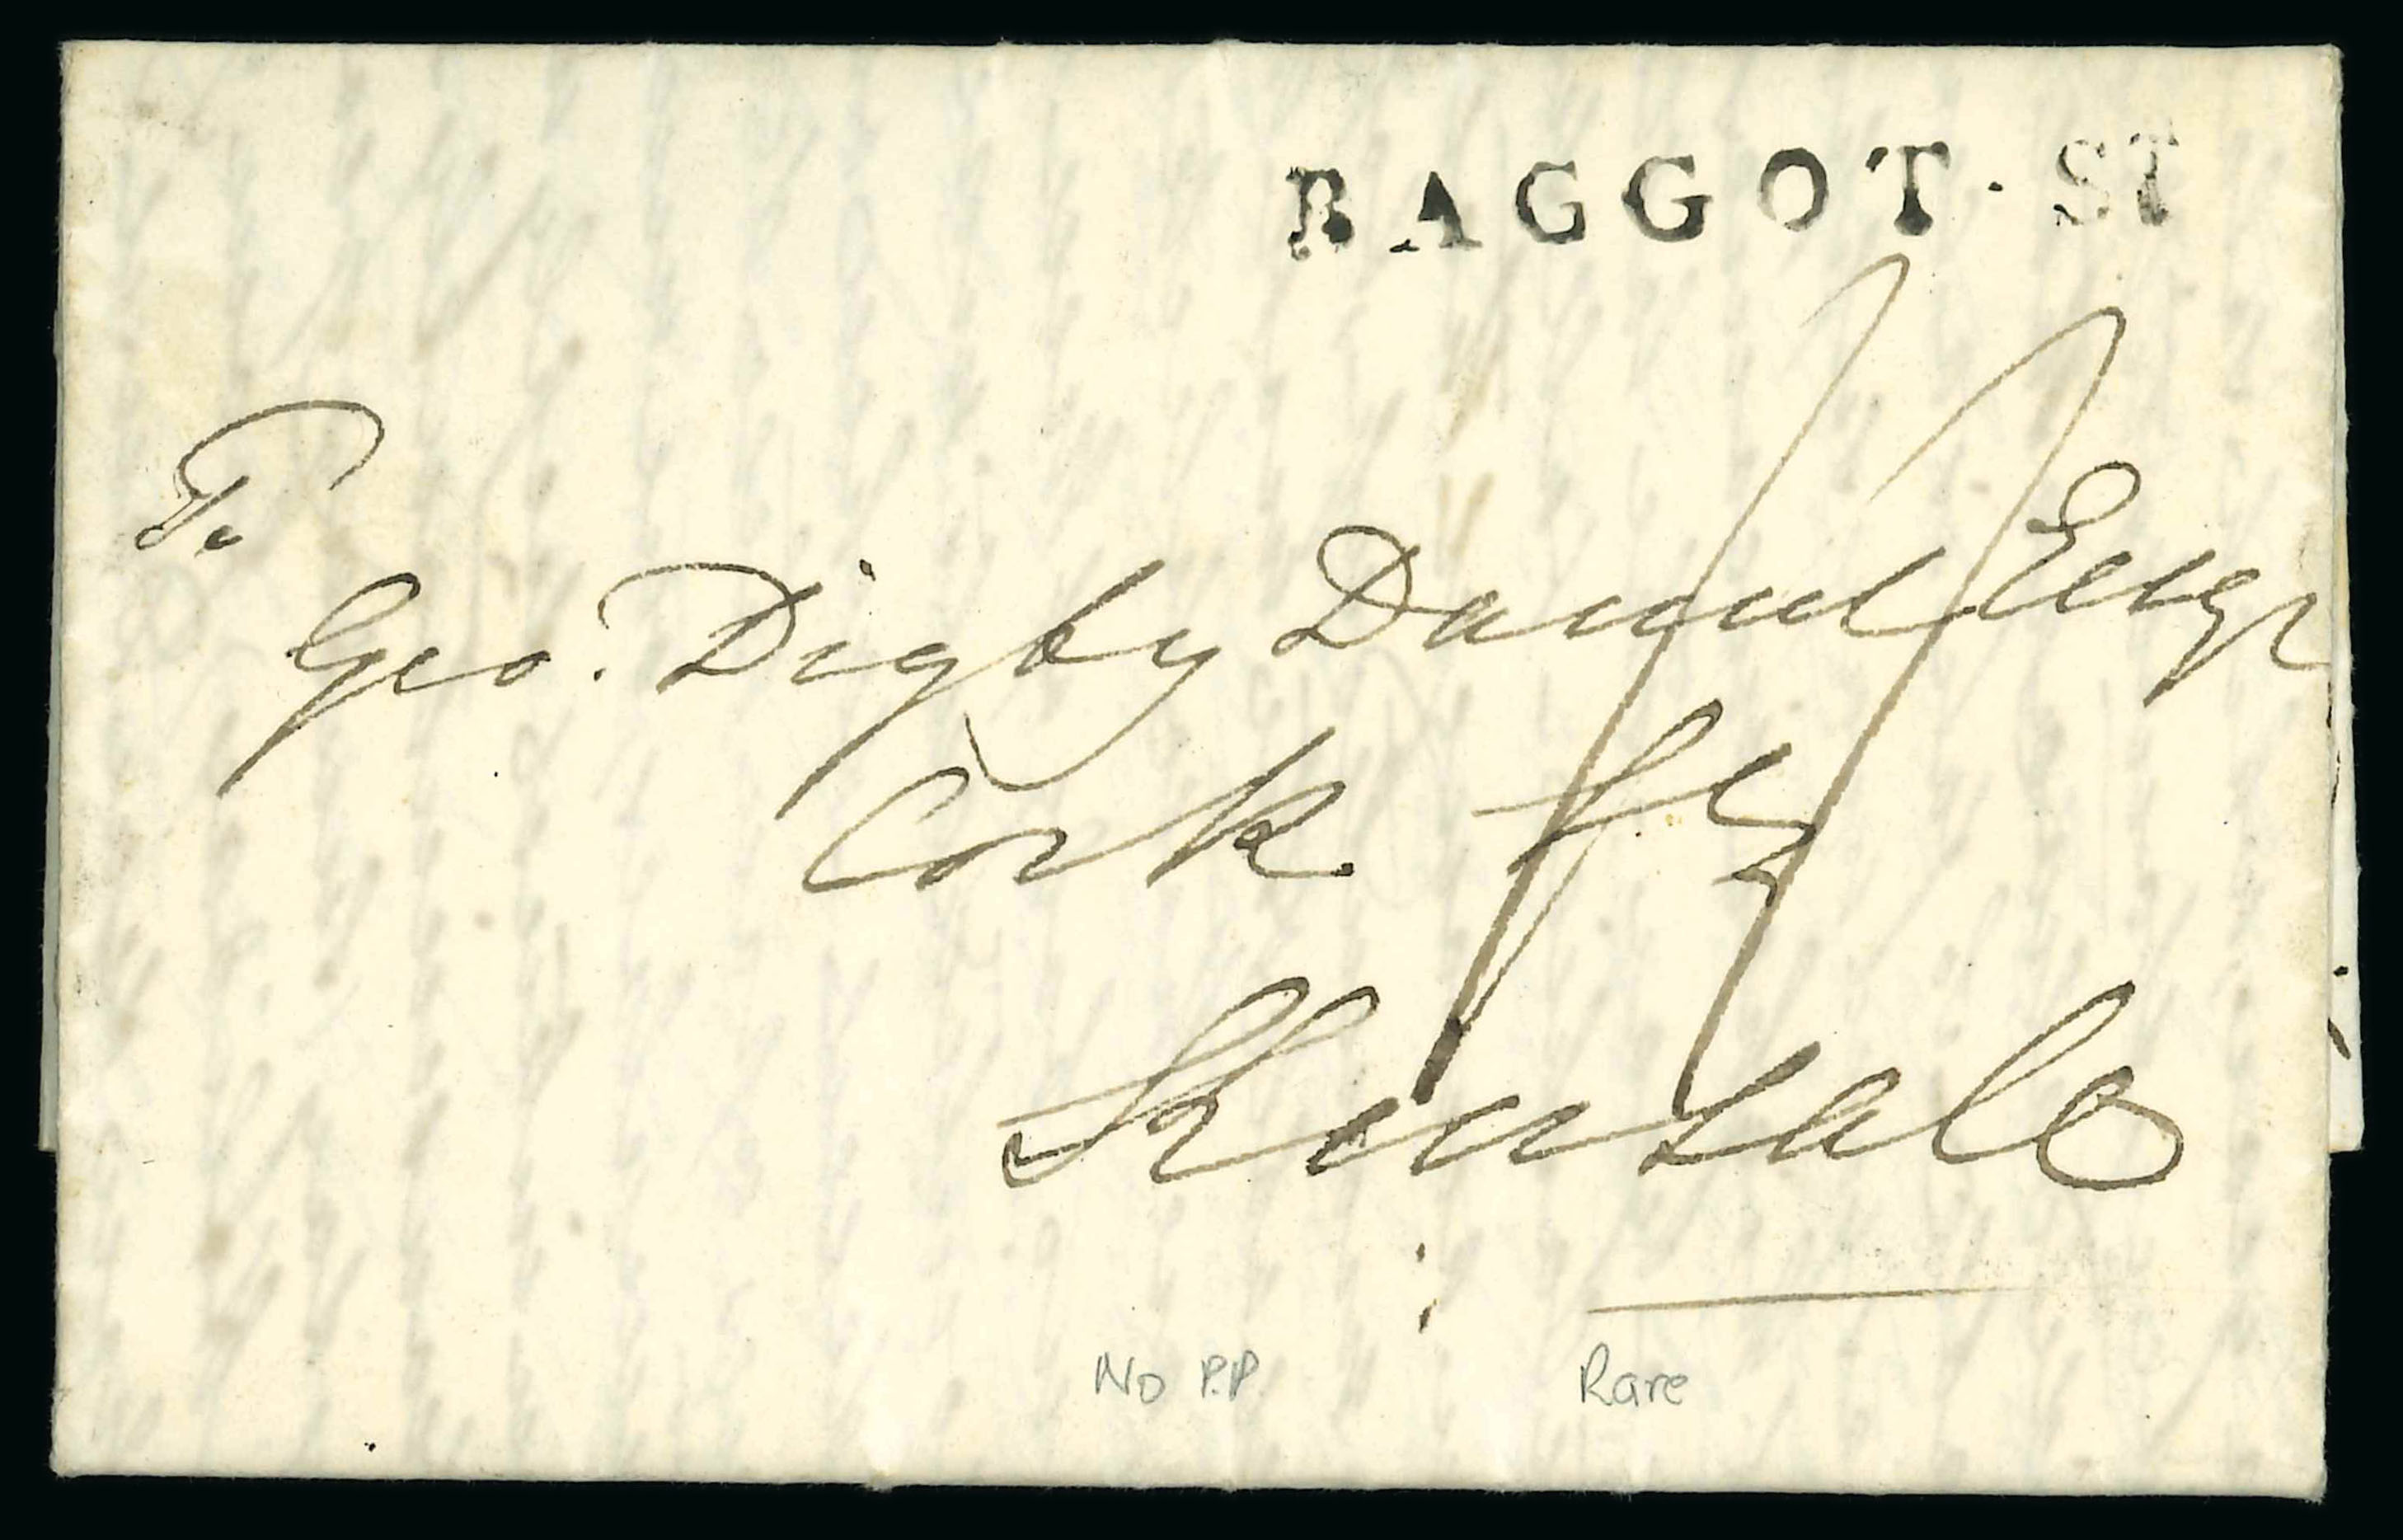 BAGGOT · ST
To
Geo. Digby Daunt Esqr
Cork
Kinsale
No P.P
Rare